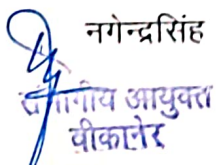 नगेन्द्रसिंह
संभागीय आयुक्त
बीकानेर